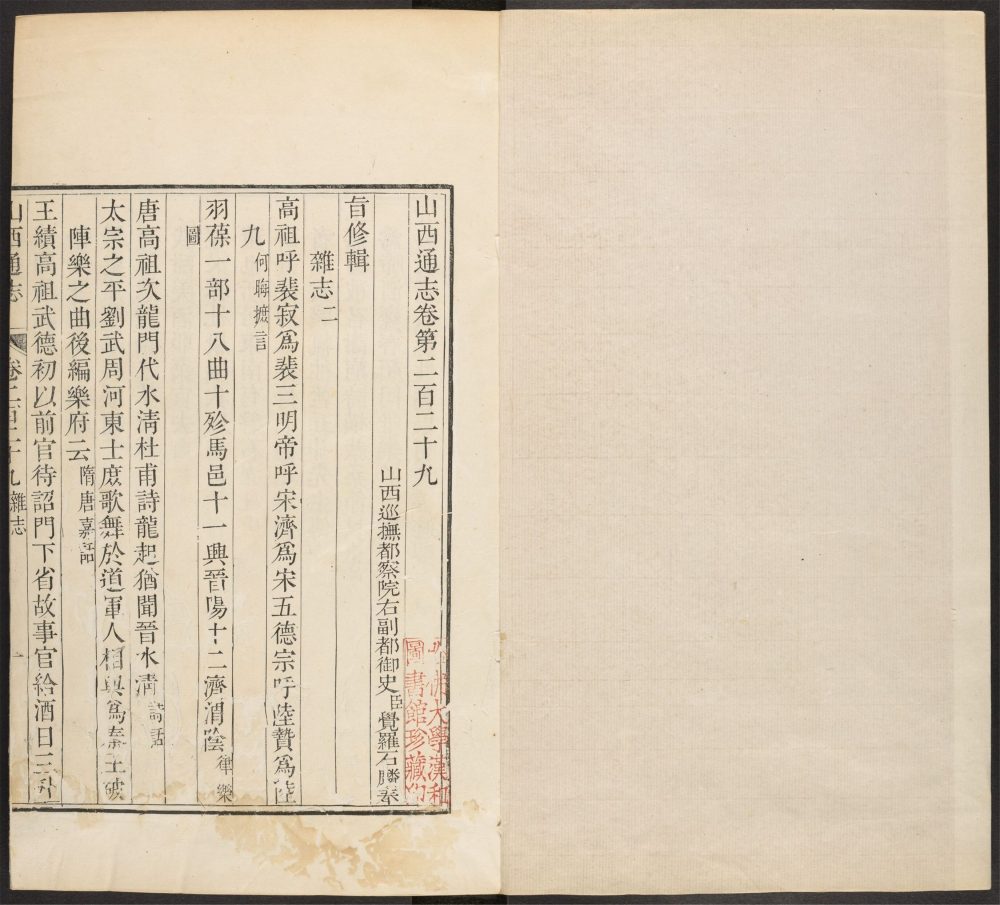 山西通志卷第二百二十九
山西巡撫都察院右副都御史臣覺羅石麟奉
旨修輯
雜志二
高祖呼裴寂爲裴三明帝呼宋濟爲宋五德宗呼陸贄爲陸
九何晦摭言
羽葆一部十八曲十殄馬邑十一興晉陽十二濟渭陰律樂
圖
唐高祖次龍門代水淸杜甫詩龍起猶聞晉水淸詩話
太宗之平劉武周河東士庶歌舞於道軍人相與爲秦王破
陣樂之曲後編樂府云隋唐嘉話
王績高祖武德初以前官待詔門下省故事官給酒日三升
山西通志 卷二百二十九雜志 一
大學漢和
圖書館珍藏印